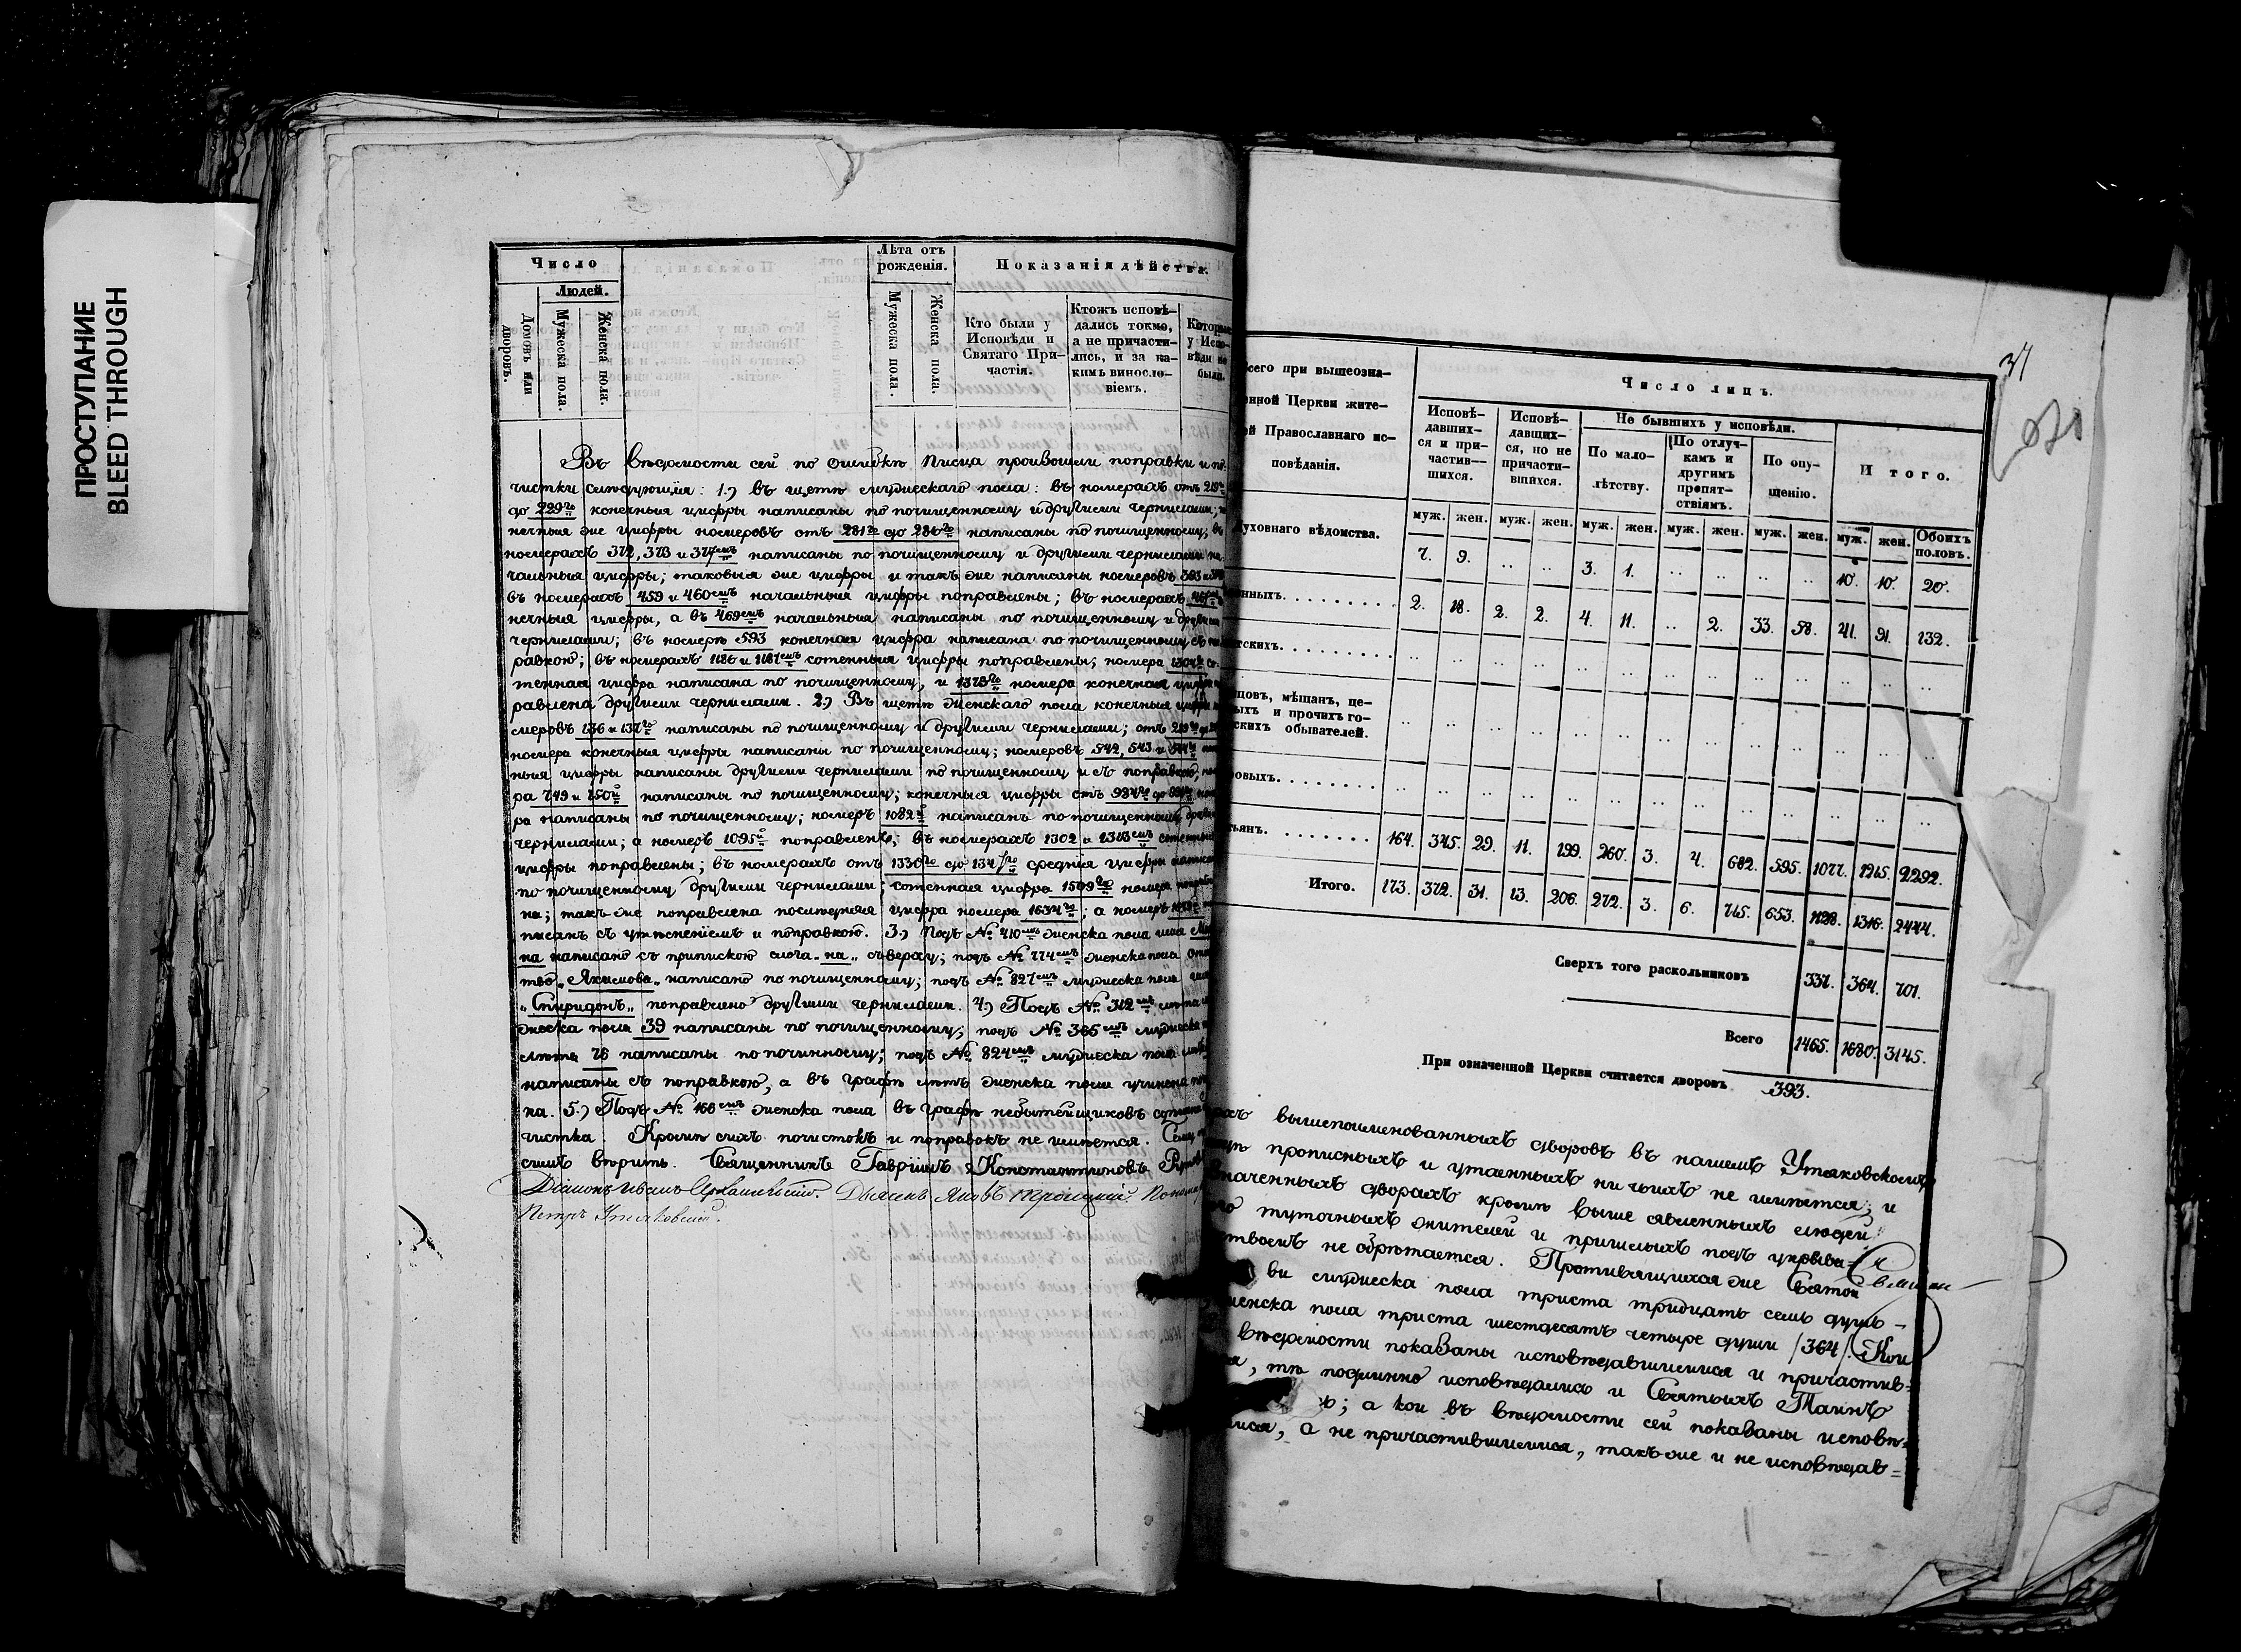 ПРОСТУПАНИЕ
BLEED THROUGH
Число
Людей.
Домовъ или дворовъ.
Мужеска пола.
Женска пола.
Лѣта отъ рожденія.
Мужеска пола.
Женска пола.
Показанія дѣйства.
Кто были у Исповѣди и Святаго При-
частія.
Ктожъ исповѣ-
дались токмо,
а не причасти-
лись, и за ка-
кимъ виносло-
віемъ.
у Испо-
вѣди не
были.
Въ вѣдомости сей по ошибкѣ писца произошли поправки и по-
чистки слѣдующія: 1.) въ щетѣ мужескаго пола: въ номерахъ отъ 219го
до 229го конечныя цифры написаны по почищенному и другими чернилами;
нечныя же цифры номеровъ отъ 281го до 286го написаны по почищенному, въ
номерахъ 372, 373 и 374емъ написаны по почищенному и другими чернилами на-
чальныя цифры; таковыя же цифры и такъ же написаны номеровъ 383
въ номерахъ 459 и 460емъ начальныя цифры поправлены; въ номерахъ
нечныя цифры, а въ 469емъ начальныя написаны по почищенному и другими
чернилами; въ номерѣ 593 конечная цифра написана по почищенному съ по-
равкою; въ номерахъ 1186 и 1187емъ сотенныя цифры поправлены; номера
тенная цифра написана по почищенному, и 1378го номера конечная цифра
равлена другими чернилами. 2.) Въ щетѣ женскаго пола конечныя цифры
меровъ 136 и 137го написаны по почищенному и другими чернилами; отъ
номера конечныя цифры написаны по почищенному; номеровъ 542, 543 и
ныя цифры написаны другими чернилами по почищенному и съ поправкою,
ра 749 и 750й написаны по почищенному; конечныя цифры отъ 984го до
ра написаны по почищенному; номеръ 1082й написанъ по почищенному
чернилами; а номеръ 1095й поправленъ; въ номерахъ 1302 и 1313емъ сотенныя
цифры поправлены; въ номерахъ отъ 1330го до средняя цифры
по почищенному другими чернилами; сотенная цифра 1509го номера
на; такъ же поправлена послѣдняя цифра номера 1634го; а номеръ
писанъ съ утѣсненіемъ и поправкою. 3.) Подъ № 410емъ женска пола имя
на написано съ припискою слога „на„ съверху; подъ № 774емъ женска пола
тво „Якимова„ написано по почищенному; подъ № 827емъ мужеска пола
„Спиридонъ„ поправлено другими чернилами. 4.) Подъ № 312емъ
жеска пола 39 написаны по почищенному; подъ № 365емъ мужеска
лѣта 76 написаны по почищенному; подъ № 824емъ мужеска пола
написаны съ поправкою, а въ графѣ лѣтъ женска пола учинена
ка. 5.) Подъ № 166емъ женска пола въ графѣ небытейщиковъ
чистка. Кромѣ сихъ почистокъ и поправокъ не имѣется.
симъ вѣрить. Священникъ Гавріилъ Константиновъ
Діаконъ Иванъ Дьячекъ Яковъ
Петръ Утяковскій.
31
сего при вышеозна-
нной Церкви жите-
й Православнаго ис-
повѣданія.
Число лицъ.
Исповѣ-
давших-
ся и при-
частив-
шихся.
Исповѣ-
давших-
ся, но не
причасти-
вшихся.
Не бывшихъ у исповѣди.
По мало-
лѣтству.
По отлуч-
камъ и
другимъ
препят-
ствіямъ.
По опу-
щенію.
Итого.
муж. жен. муж. жен. муж. жен. муж. жен. муж. жен. муж. жен. Обоихъ половъ.
уховнаго вѣдомства. 7. 9. .. .. 3. 1. .. .. .. .. 10. 10. 20.
нныхъ. 2. 18. 2. 2. 4. 11. .. 2. 33. 58. 41. 91. 132.
тскихъ. .. .. .. .. .. .. .. .. .. .. .. .. ..
повъ, мѣщанъ, це-
ыхъ и прочихъ го-
скихъ обывателей. .. .. .. .. .. .. .. .. .. .. .. .. ..
ровыхъ. .. .. .. .. .. .. .. .. .. .. .. .. ..
ьянъ. 164. 345. 29. 11. 199. 260. 3. 4. 682. 595. 1077. 1215. 2292.
Итого. 173. 372. 31. 13. 206. 272. 3. 6. 715. 653. 1128. 1316. 2444.
Сверхъ того раскольниковъ 337. 364. 701.
Всего 1465. 1680. 3145.
При означенной Церкви считается дворовъ 393.
рахъ вышепоименованныхъ дворовъ въ нашемъ Утяковскомъ
прописныхъ и утаенныхъ ни чьихъ не имѣется; и
наченныхъ дворахъ кромѣ выше явленныхъ людей
туточныхъ жителей и пришлыхъ подъ укрыва-
твомъ не обрѣтается. Противящихся же Святой
ви мужеска пола триста тридцать семь душъ -
женска пола триста шестдесятъ четыре души /364/. Кои
вѣдомости показаны исповѣдавшимися и причастив-
я, тѣ подлинно исповѣдались и Святыхъ Таинъ
ь; а кои въ вѣдомости сей показаны исповѣ-
ися, а не причастившимися, такъ же и не исповѣдав-